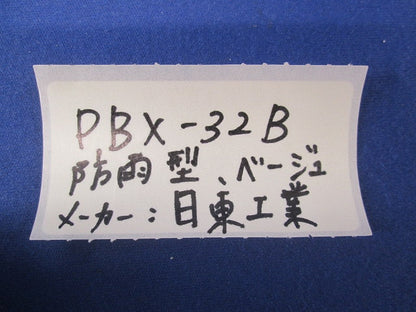 PBX-32B
防雨型、ベージュ
メーカー：日東工業